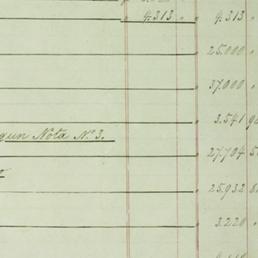 " 4.313 " " 4.313 "
" 25.000 "
" 37.000 "
" 3.541 9
egun Nota Nº 3.
" 27.704 5
" 25.932 8
" 3.220 "